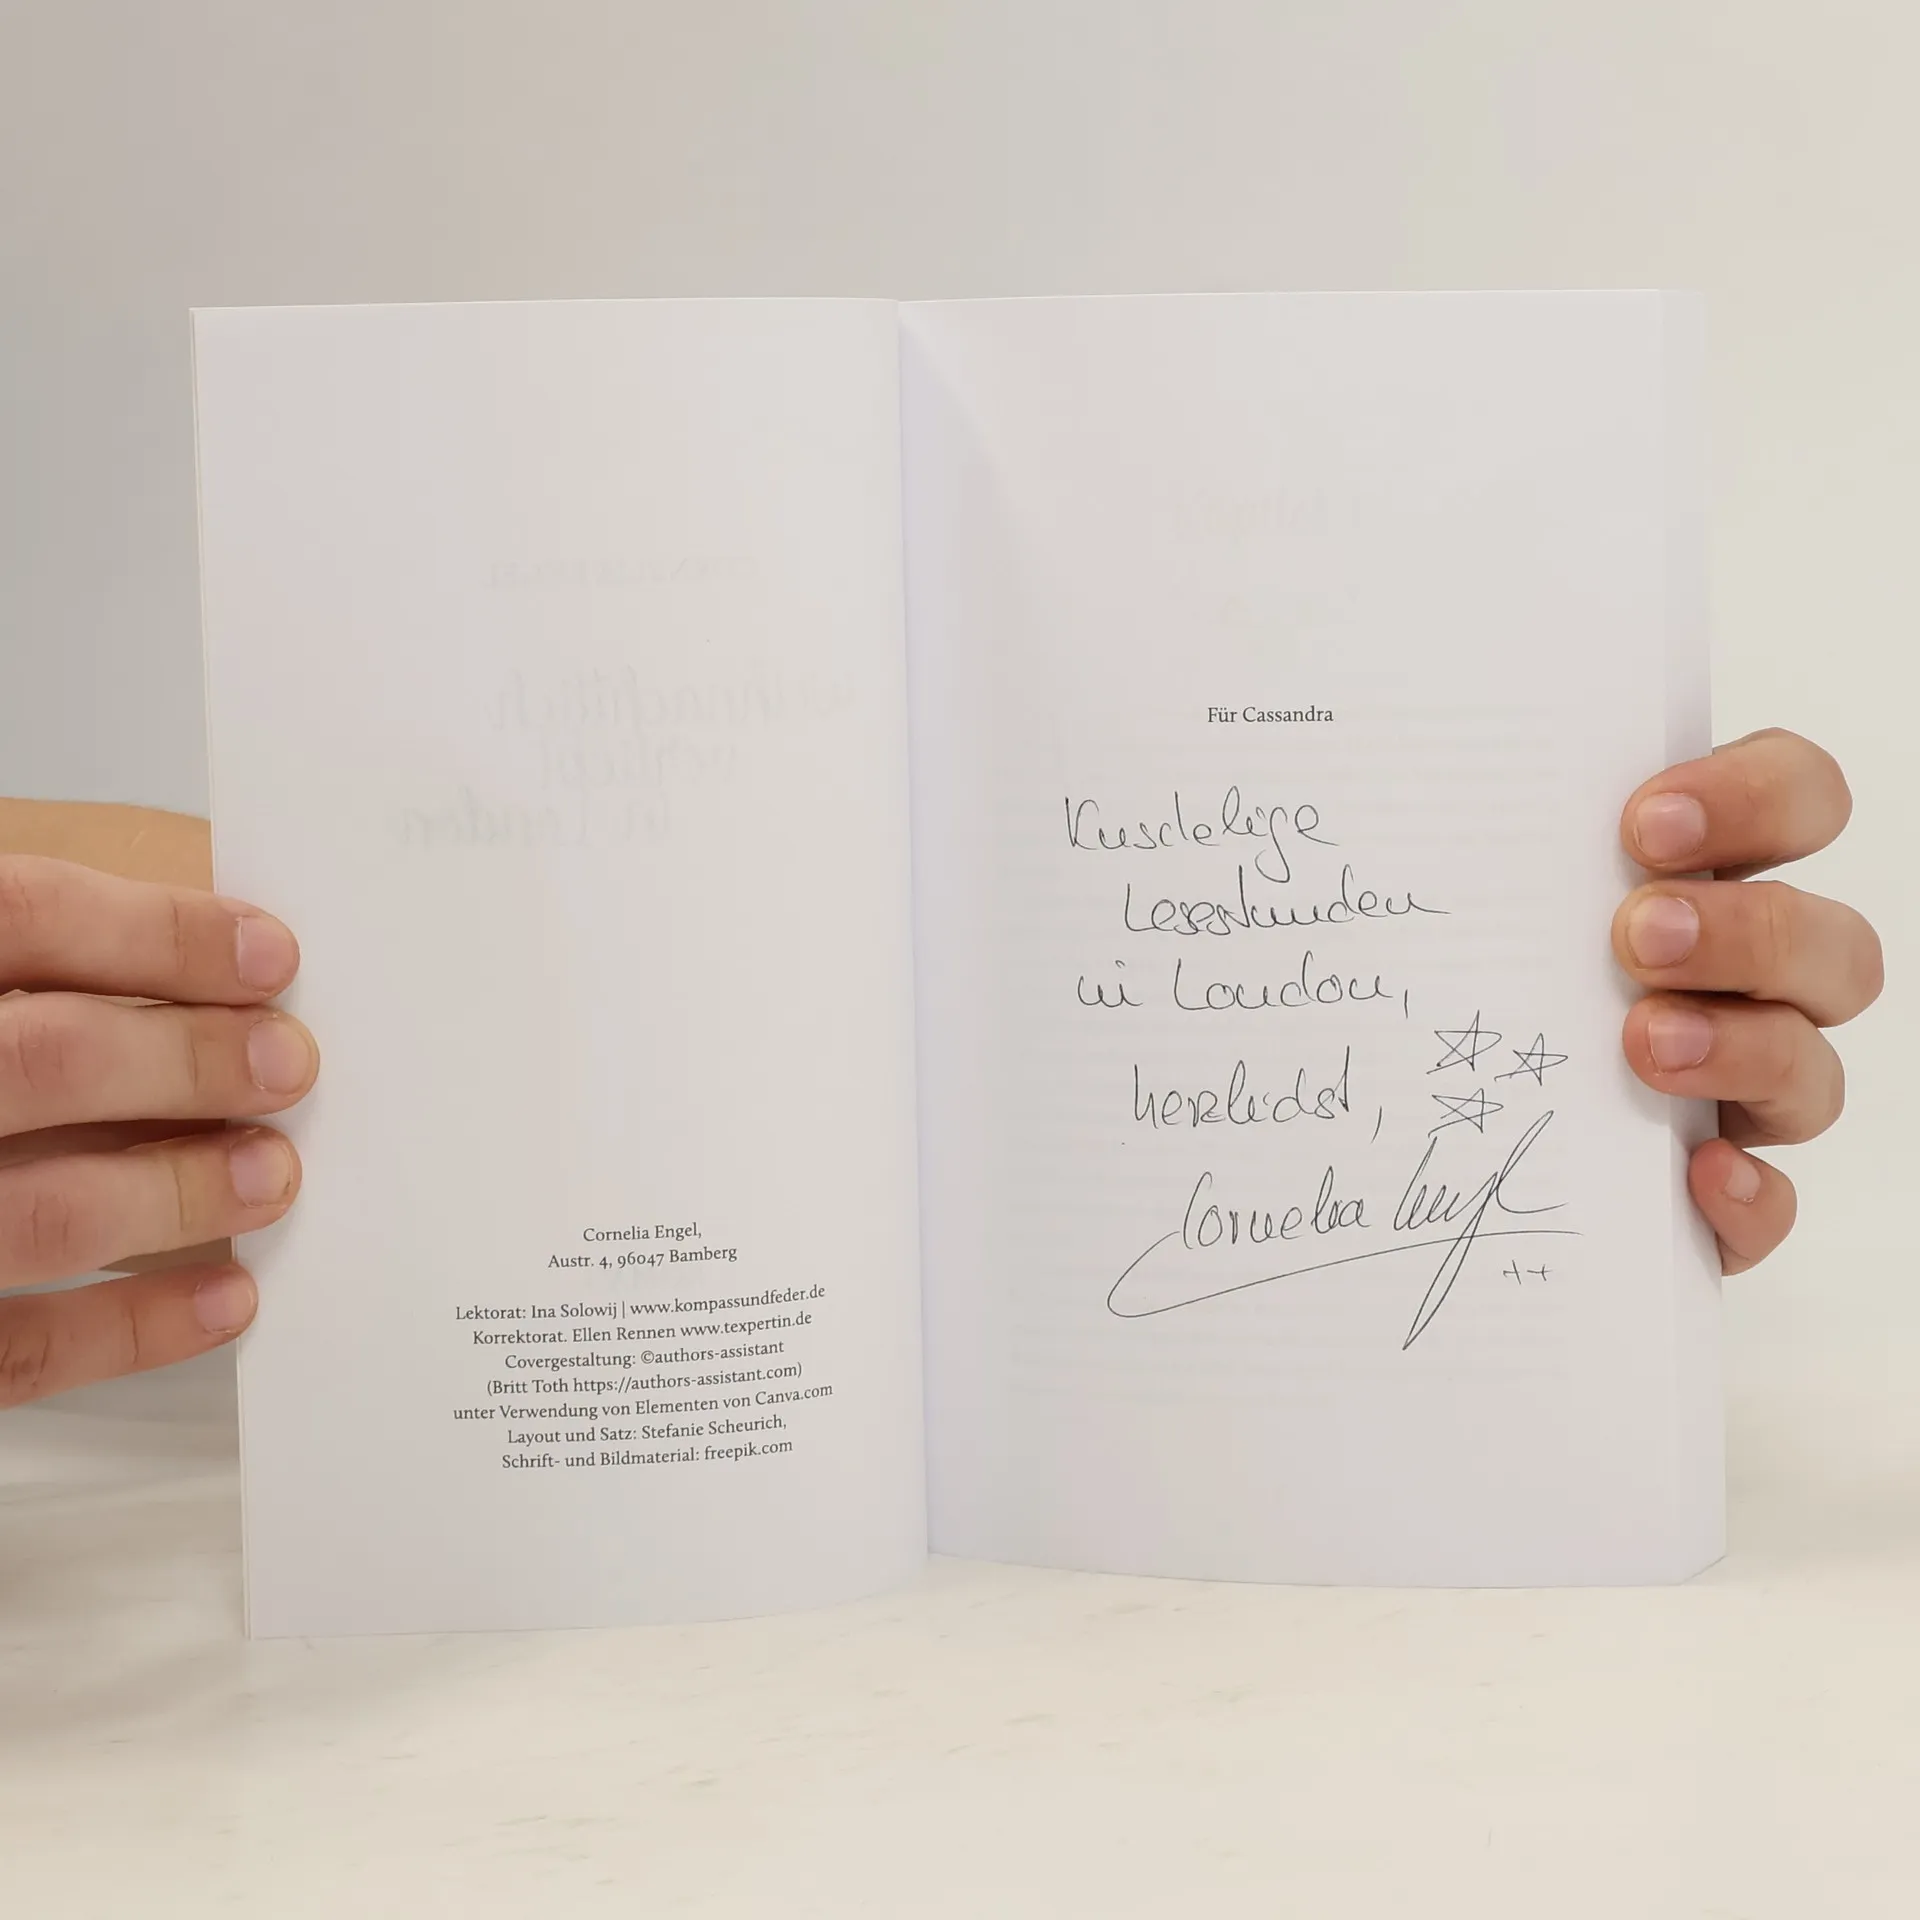 Cornelia Engel,
Austr. 4, 96047 Bamberg
Lektorat: Ina Solowij | www.kompassundfeder.de
Korrektorat. Ellen Rennen www.texpertin.de
Covergestaltung: ©authors-assistant
(Britt Toth https://authors-assistant.com)
unter Verwendung von Elementen von Canva.com
Layout und Satz: Stefanie Scheurich,
Schrift- und Bildmaterial: freepik.com
Für Cassandra
Kuschelige
Lesestunden
in London,
herzlichst,
Cornelia Engel
++